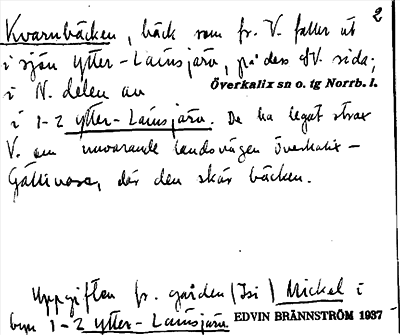 2
Kvarnbäcken, bäck som fr. V. faller ut
i sjön Ytter-Lainsjärv, på dess NV. sida;
i N. delen av
Överkalix sn o. tg Norrb. l.
i 1-2 Ytter-Lainsjärv. De ha legat strax
V. om nuvarande landsvägen Överkalix-
Gällivare, där den skär bäcken.
Uppgiften fr. gården (Isi) Mickel i
byn 1-2 Ytter-Lainsjärv EDVIN BRÄNNSTRÖM 1937